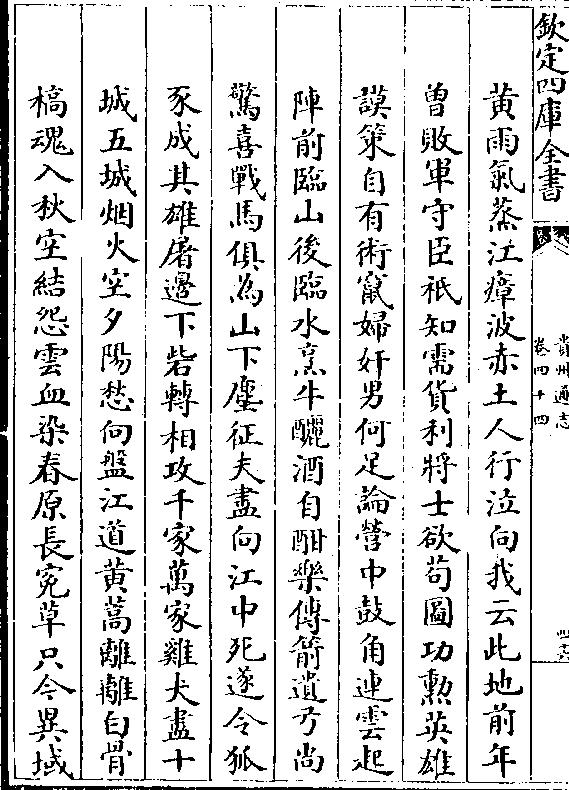 欽定四庫全書
貴州通志
卷四十四
黄雨氣蒸江瘴波赤土人行泣向我云此地前年
曽敗軍守臣祇知需貨利將士欲茍圖功勲英雄
謨䇿自有術竄婦奸男何足論營中鼓角連雲起
陣前臨山後臨水烹牛釃酒自酣樂傳箭遺弓尚
驚喜戰馬俱為山下塵征夫盡向江中死遂令狐
豕成其雄屠邊下砦轉相攻千家萬家雞犬盡十
城五城烟火空夕陽愁向盤江道黄蒿離離白骨
槁魂入秋空結怨雲血染春原長寃草只今異域